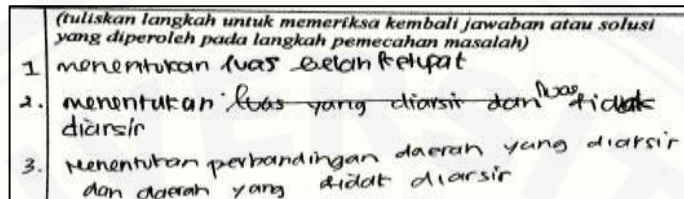 (tuliskan langkah untuk memeriksa kembali jawaban atau solusi
yang diperoleh pada langkah pemecahan masalah)
1 menentukan luas belah ketupat
2. menentukan luas yang diarsir dan luas tidak
diarsir
3. Menentukan perbandingan daerah yang diarsir
dan daerah yang didat diarsir